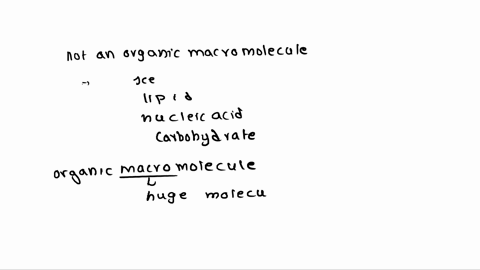 not an organic macromolecule
Ice
lipid
nucleic acid
carbohydrate
organic macromolecule
huge molecu